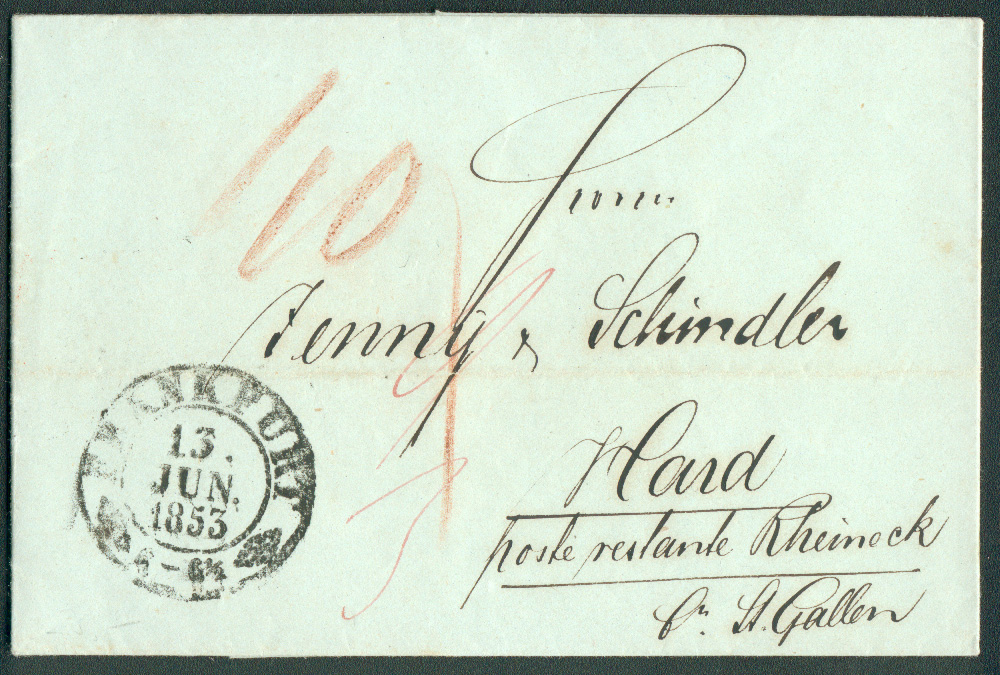 Herrn
Jenny & Schindler
Hard
poste restante Rheineck
Cn. St. Gallen
FRANKFURT
13.
JUN.
1853
6 - 6½
10